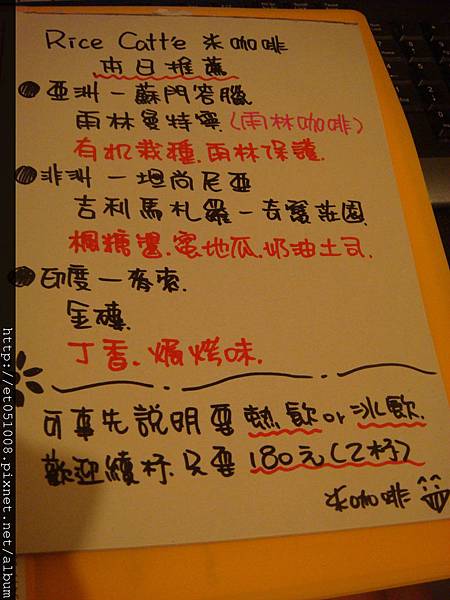 Rice Caffe 米咖啡
本日推薦
亞洲－蘇門答臘
雨林曼特寧(雨林咖啡)
有机栽種.雨林保護.
非洲－坦尚尼亞
吉利馬札羅－奇寶莊園
楓糖醬.蜜地瓜.奶油土司.
印度－麥索.
金磚.
丁香.焗烤味.
可事先說明要熱飲or冰飲.
歡迎續杯.只要180元(2杯)
米咖啡
http://et051008.pixnet.net/album